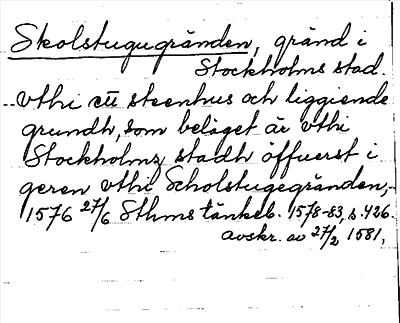 Skolstugugränden, gränd i
Stockholms stad.
vthi ett steenhus och liggiende
grundh, som beläget är vthi
Stockholms stadh öffuerst i
geren vthi Scholstugegränden,
1576 27/6 Sthms tänkeb. 1578-83, s. 426.
avskr. av 27/2 1581,